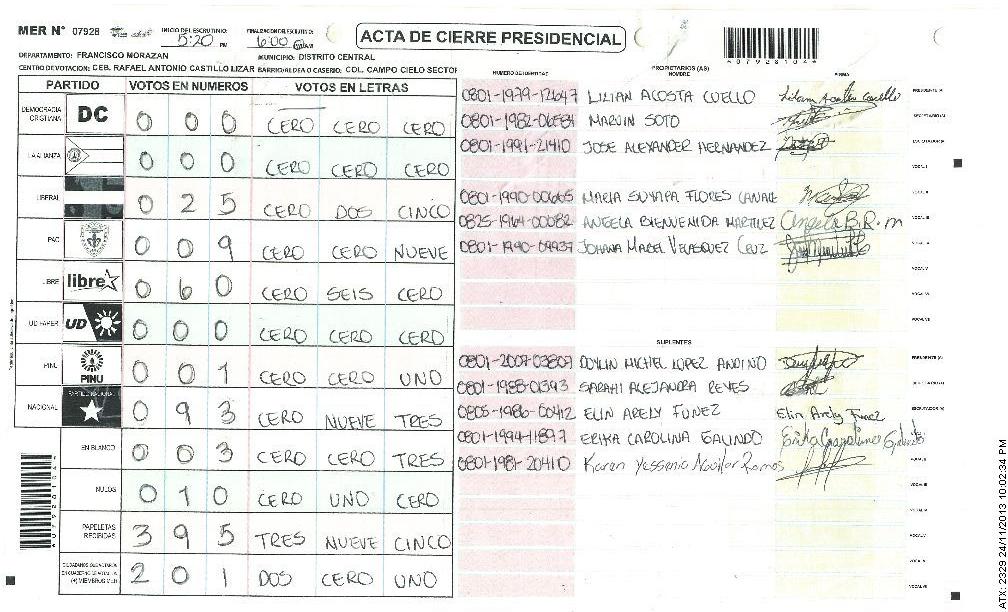 MER N° 07928 INICIO DEL ESCRUTINIO: 5:20 PM FINALIZACION DEL ESCRUTINIO: 6:00
ACTA DE CIERRE PRESIDENCIAL
A07928104
DEPARTAMENTO: FRANCISCO MORAZAN MUNICIPIO: DISTRITO CENTRAL
CENTRO DE VOTACION: CEB. RAFAEL ANTONIO CASTILLO LIZAR BARRIO/ALDEA O CASERIO: COL. CAMPO CIELO SECTOR
PARTIDO VOTOS EN NUMEROS VOTOS EN LETRAS
DEMOCRACIA CRISTIANA DC 0 0 0 CERO CERO CERO
LA ALIANZA 0 0 0 CERO CERO CERO
LIBERAL 0 2 5 CERO DOS CINCO
PAC 0 0 9 CERO CERO NUEVE
LIBRE libre 0 6 0 CERO SEIS CERO
UD FAPER UD 0 0 0 CERO CERO CERO
PINU PINU 0 0 1 CERO CERO UNO
NACIONAL PARTIDO NACIONAL 0 9 3 CERO NUEVE TRES
EN BLANCO 0 0 3 CERO CERO TRES
NULOS 0 1 0 CERO UNO CERO
PAPELETAS RECIBIDAS 3 9 5 TRES NUEVE CINCO
(+) MIEMBROS MER 2 0 1 DOS CERO UNO
NUMERO DE IDENTIDAD PROPIETARIOS (AS) NOMBRE FIRMA
0801-1979-12647 LILIAN ACOSTA COELLO Lilian Acosta Coello PRESIDENTE (A)
0801-1982-06584 MARVIN SOTO SECRETARIO (A)
0801-1991-21410 JOSE ALEXANDER HERNANDEZ ESCRUTADOR (A)
VOCAL I
0801-1990-00665 MARIA SUYAPA FLORES CANALE VOCAL II
0825-1964-00082 ANGELA BIENVENIDA MARTINEZ Angela B.R.m VOCAL III
0801-1990-09937 JOHANA MABEL VELASQUEZ CRUZ
VOCAL V
VOCAL VI
VOCAL VII
SUPLENTES
0801-2007-03809 ODYLIN MICHEL LOPEZ ANDINO PRESIDENTE (A)
0801-1988-01393 SARAHI ALEJANDRA REYES
0805-1986-00412 ELIN ARELY FUNEZ Elin Arely Funez ESCRUTADOR (A)
0801-1994-11897 ERIKA CAROLINA GALINDO
0801-1981-20410 Karen Yessenia Aguilar Ramos
ATX: 2329 24/11/2013 10:02:34 PM